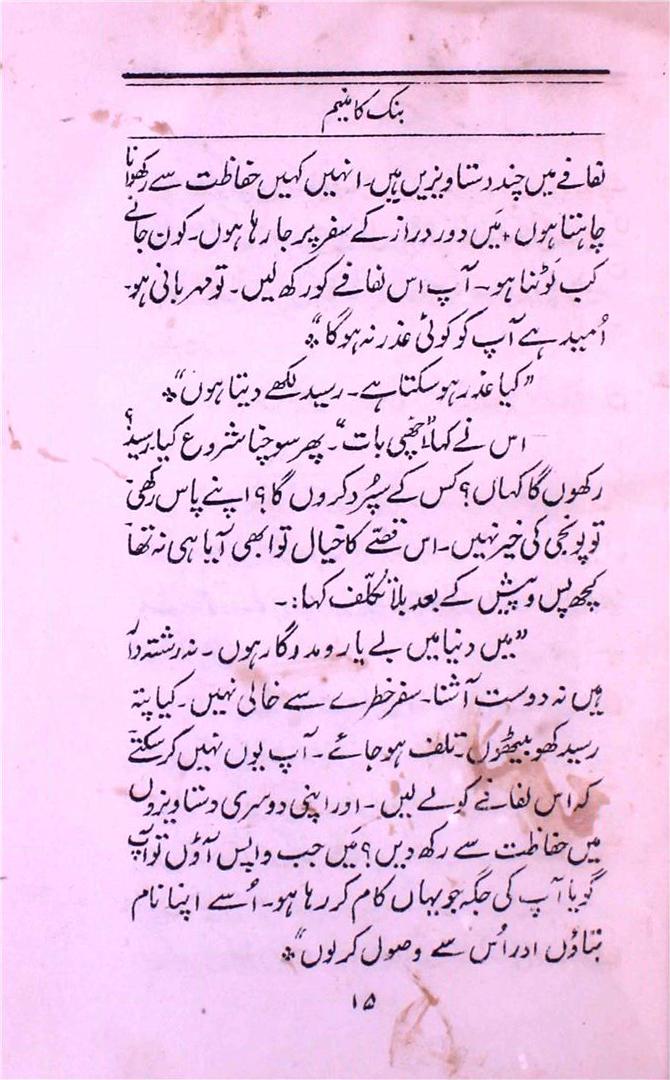 بنک کا منیم
لفافے میں چند دستاویزیں ہیں۔ انہیں کہیں حفاظت سے رکھوانا
چاہتا ہوں۔ مَیں دور دراز کے سفر پر جا رہا ہوں۔ کون جانے
کب لَوٹنا ہو۔ آپ اس لفافے کو رکھ لیں۔ تو مہربانی ہو۔
اُمید ہے آپ کو کوئی عذر نہ ہوگا"٭
"کیا عذر ہو سکتا ہے۔ رسید لکھے دیتا ہوں"٭
اس نے کہا "اچھی بات"۔ پھر سوچنا شروع کیا۔ رسید؟
رکھوں گا کہاں؟ کس کے سپُرد کروں گا؟ اپنے پاس رکھی
تو پونجی کی خیر نہیں۔ اس قصّے کا خیال تو ابھی آیا ہی نہ تھا
کچھ پس و پیش کے بعد بلا تکلّف کہا:۔
"میں دنیا میں بے یار و مددگار ہوں۔ نہ رشتہ دار
ہیں نہ دوست آشنا۔ سفر خطرے سے خالی نہیں۔ کیا پتہ
رسید کھو بیٹھوں۔ تلف ہو جائے۔ آپ یوں نہیں کر سکتے
کہ اس لفافے کو لے لیں۔ اور اپنی دوسری دستاویزوں
میں حفاظت سے رکھ دیں؟ مَیں جب واپس آؤں تو آپ
گویا آپ کی جگہ جو یہاں کام کر رہا ہو۔ اُسے اپنا نام
بتاؤں اور اُس سے وصول کر لوں"٭
۱۵